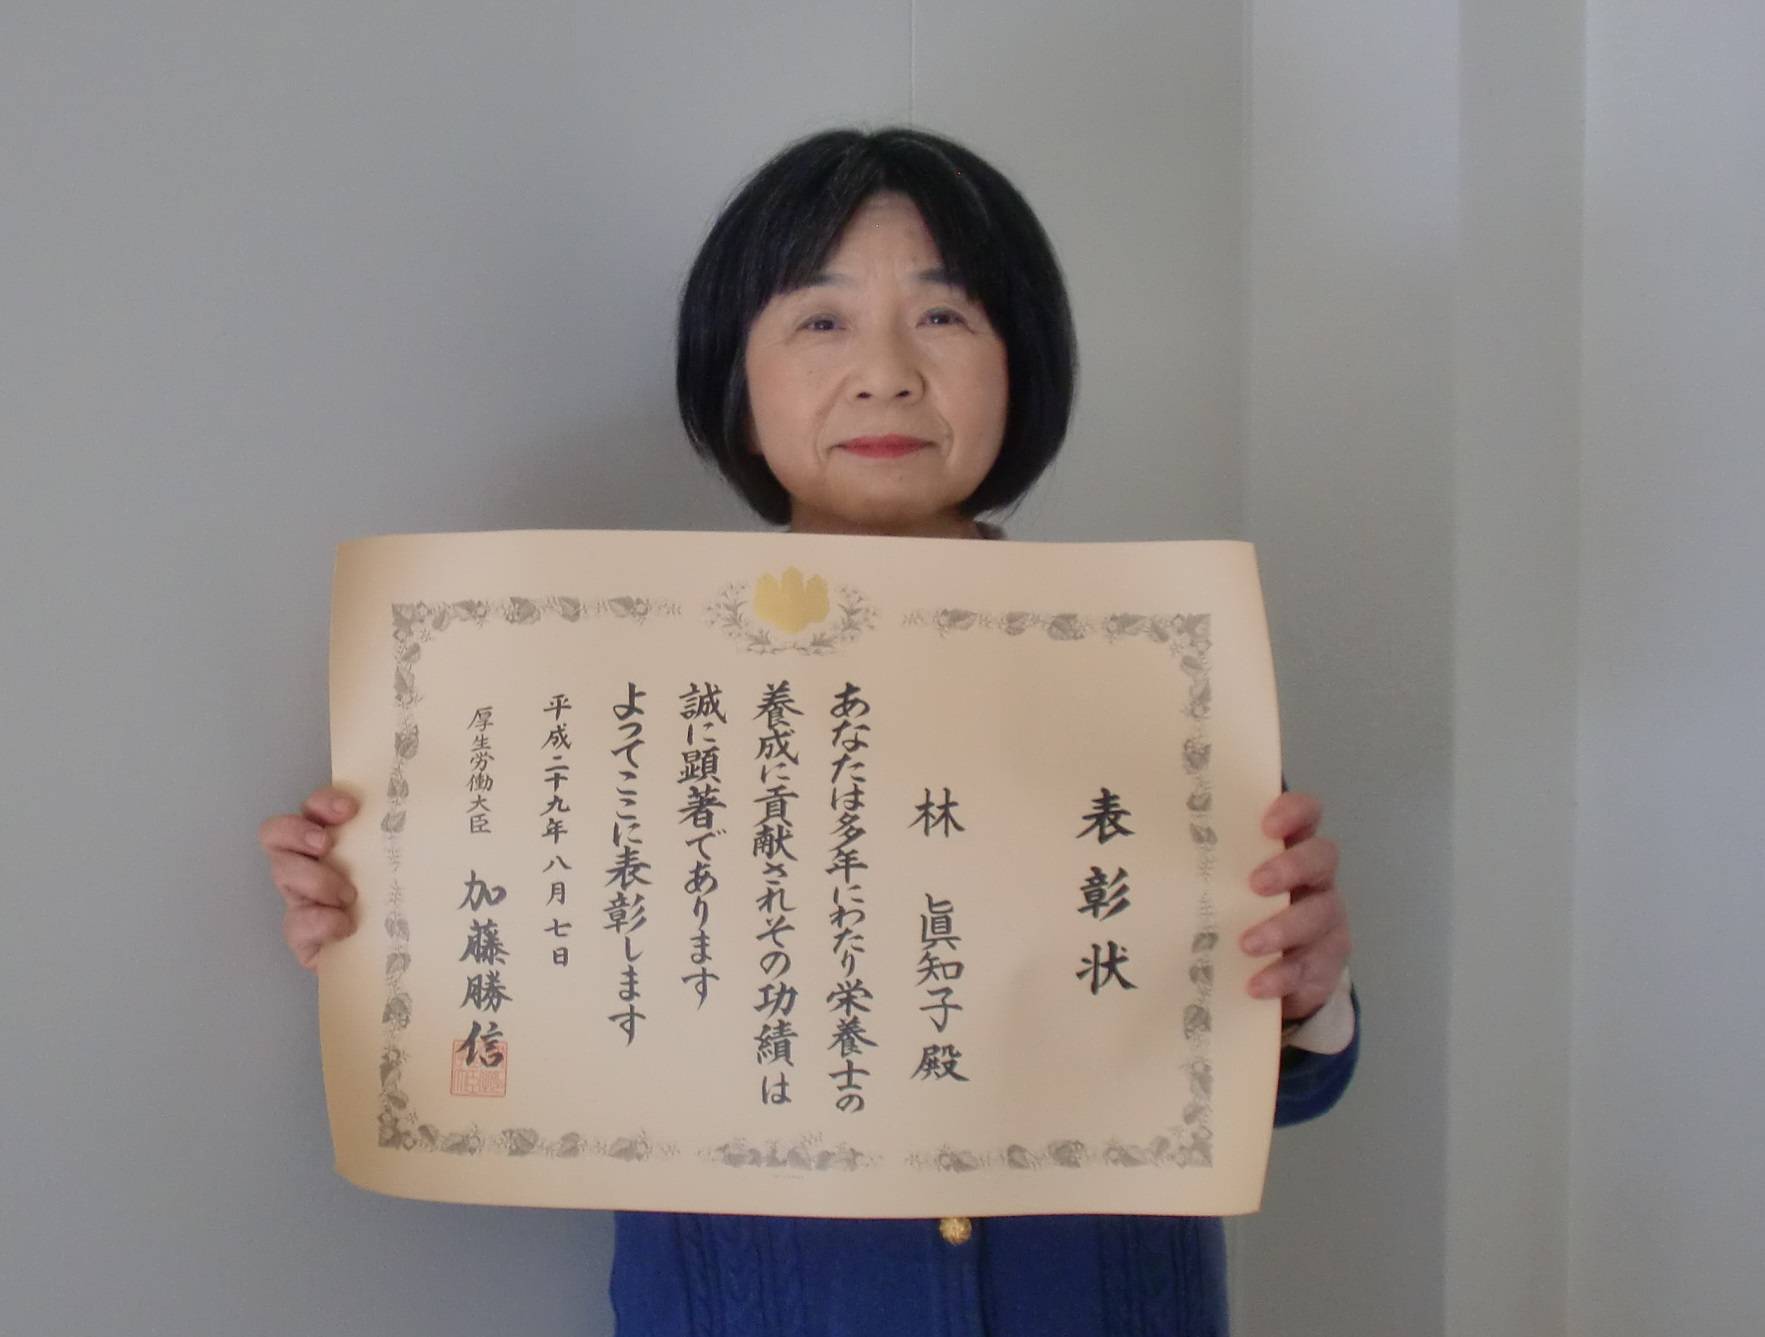 表彰状
林 眞知子殿
あなたは多年にわたり栄養士の
養成に貢献されその功績は
誠に顕著であります
よってここに表彰します
平成二十九年八月七日
厚生労働大臣 加藤勝信